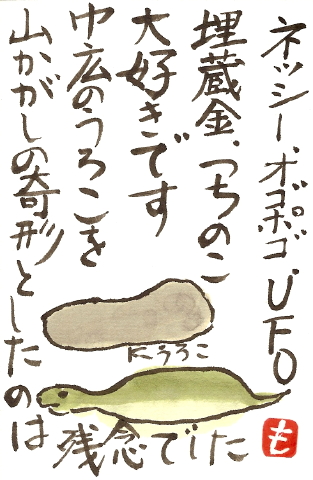 ネッシー、オゴポゴ、UFO
埋蔵金、つちのこ
大好きです
巾広のうろこを
山かがしの奇形としたのは
残念でした
うろこ
も